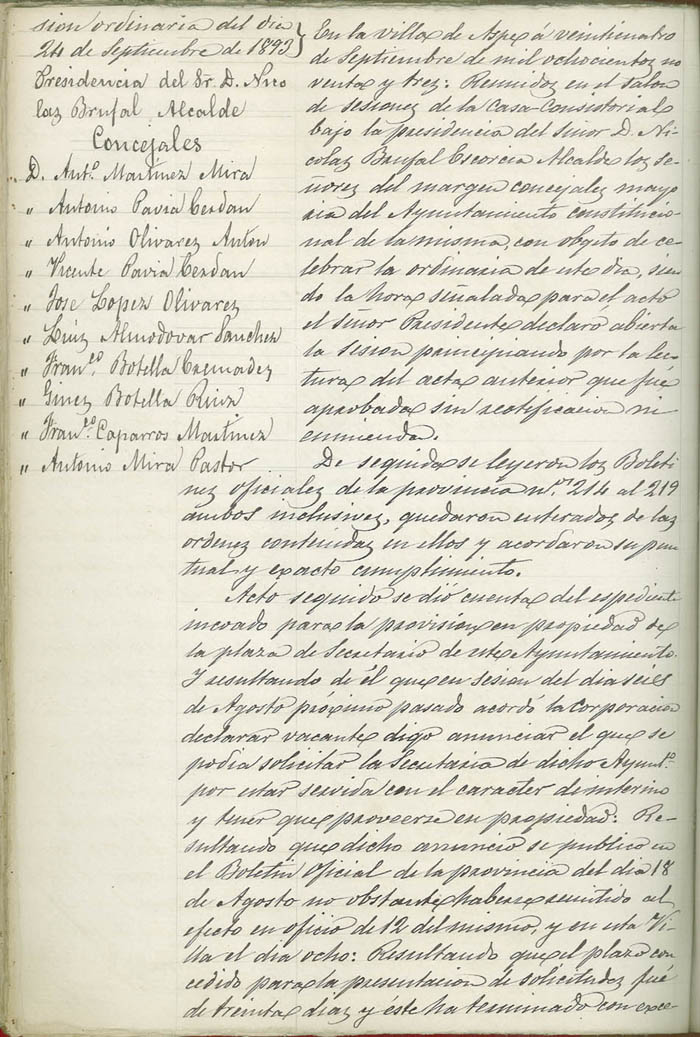 sion ordinaria del dia
24 de Septiembre de 1893}
Presidencia del Sr. D. Nico
las Brufal Alcalde
Concejales
D. Ant.º Martinez Mira
" Antonio Pavia Cerdan
" Antonio Olivarez Anton
" Vicente Pavia Cerdan
" Jose Lopez Olivarez
" Luiz Almodovar Sanchez
" Fran.co Botella Cremadez
" Ginez Botella Ruiz
" Fran.co Caparros Martinez
" Antonio Mira Pastor
En la villa de Aspe á veinticuatro
de Septiembre de mil ochocientos no
venta y trez: Reunidoz en el Salon
de sesionez de la Casa-Consistorial
bajo la presidencia del Señor D. Ni-
colaz Brufal Alcalde loz Se-
ñorez del margen concejalez mayo
ria del Ayuntamiento constitucio-
nal de la misma, con objeto de ce-
lebrar la ordinaria de este dia, sien-
do la hora señalada para el acto
el señor Presidente declaró abierta
la sision principiando por la lec-
tura del acta anterior que fué
aprobada sin rectificacion ni
enmienda.
De seguida se leyeron loz Boleti
nez oficialez de la provincia n.os 214 al 219
ambos inclusivez, quedaron enteradoz de laz
ordenez contenidaz en ellos y acordaron su pun
tual y exacto cumplimiento.
Acto seguido se dió cuenta del espediente
incoado para la provision en propiedad de
la plaza de Secretario de este Ayuntamiento.
Y resultando de él que en sesion del dia seis
de Agosto próximo pasado acordó la Corporacion
declarar vacante digo anunciar el que se
podia solicitar la Secretaria de dicho Ayunt.º
por estar servida con el caracter de interino
y tener que proveerse en propiedad: Re-
sultando que dicho anuncio se publico en
el Boletin Oficial de la provincia del dia 18
de Agosto no obstante haberse remitido al
efecto en oficio de 12 del mismo, y en esta Vi-
lla el dia ocho: Resultando que el plazo con
cedido para la presentacion de solicitudez fué
de treinta diaz y éste ha terminado con exce-